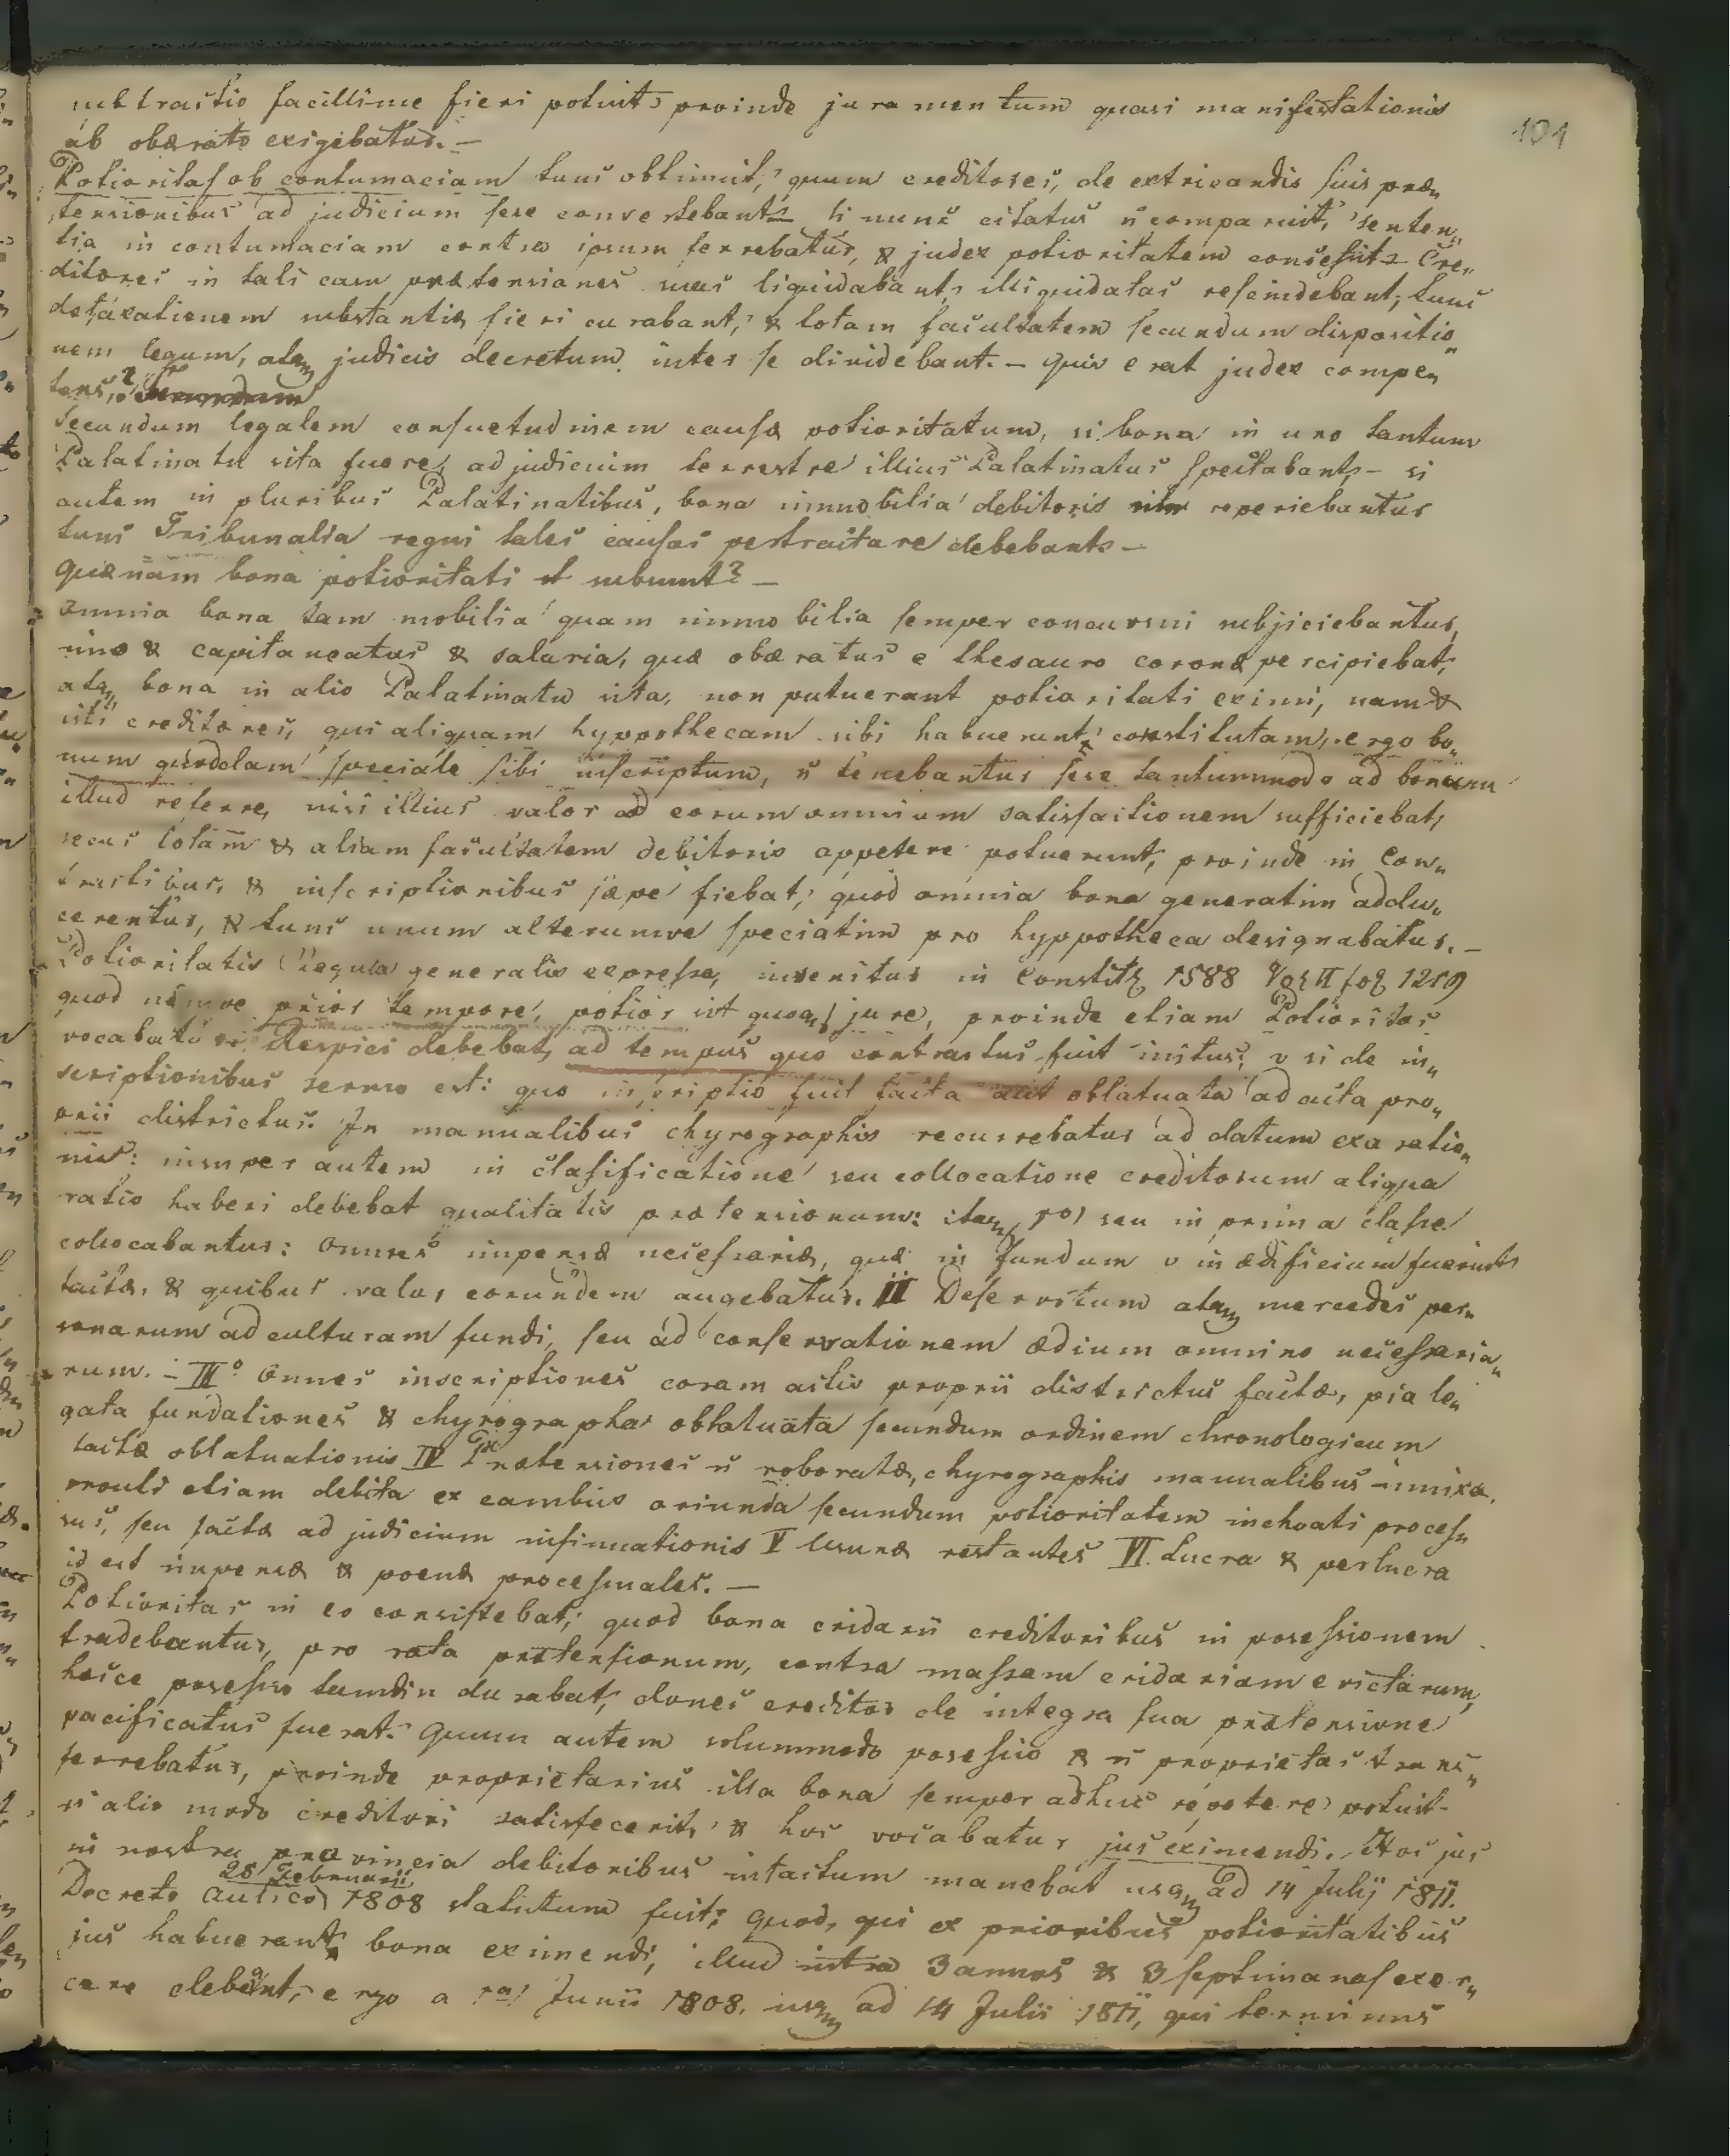 subtractio facillime fieri potuit, proinde juramentum quasi manifestationis
101
ab obærato exigebatur. —
Potioritas ob contumaciam tunc obtinuit, quum creditores, de extricandis suis præ„
tensionibus ad judicium sese convertebant. Si nunc citatus n̄ comparuit, senten„
tia in contumaciam contra ipsum ferrebatur, & judex potioritatem concessit. Cre„
ditores in tali casu prætensiones suas liquidabant, illiquidatas rescindebant, tunc
detaxationem substantiæ fieri curabant, & totam facultatem secundum dispositio„
nem legum, atq judicis decretum inter se dividebant. — Quis erat judex compe„
tens?
Secundum legalem consuetudinem causæ potioritatum, si bona in uno tantum
Palatinatu sita fuere, ad judicium terrestre illius Palatinatus spectabant, — si
autem in pluribus Palatinatibus, bona immobilia debitoris reperiebantur
tunc Tribunalia regni tales causas pertractare debebant. —
Quænam bona potioritati subsunt? —
Omnia bona tam mobilia quam immobilia semper concursui subjiciebantur,
imo & capitaneatus & salaria, quæ obæratus e thesauro coronæ percipiebat,
atq bona in alio Palatinatu sita, non potuerant potioritati eximi, nam &
isti creditores, qui aliquam hyppothecam sibi habuerunt constitutam, ergo bo„
num quoddam speciale sibi inscriptum, n̄ tenebantur sese tantummodo ad bonum
illud referre, nisi illius valor ad eorum omnium satisfactionem sufficiebat,
secus totam & aliam facultatem debitoris appetere potuerunt, proinde in Con„
tractibus, & inscriptionibus sæpe fiebat, quod omnia bona generatim addu„
cerentur, & tunc unum alterumve speciatim pro hyppotheca designabatur. —
Potioritatis Regula generalis expressa, invenitur in Constit 1588 Vol II fol 1219
quod nempe prior tempore, potior est quoq jure, proinde etiam Potioritas
vocabatur. Respici debebat, ad tempus quo contractus fuit initus; v si de in„
scriptionibus sermo est: quo inscriptio fuit facta aut oblatuata ad acta pro„
prii districtus. In manualibus chyrographis recurrebatur ad datum exaratio„
nis: insuper autem in classificatione seu collocatione creditorum aliqua
ratio haberi debebat qualitatis prætensionum: itaq 1º seu in prima classe
collocabantur: Omnes impensæ necessariæ, quæ in fundum v in ædificium fuerunt
factæ, & quibus valor eorundem augebatur. II Deservitum atq mercedes per„
sonarum ad culturam fundi, seu ad conservationem ædium omnino necessaria„
rum. — IIIº Omnes inscriptiones coram actis proprii districtus factæ, pia le„
gata fundationes & chyrographa oblatuata secundum ordinem chronologicum
factæ oblatuationis IV Prætensiones n̄ roboratæ, chyrographis manualibus innixæ,
prouti etiam debita ex cambiis oriunda secundum potioritatem inchoati proces„
sus, seu factæ ad judicium insinuationis V Usuræ restantes VI. Lucra & perlucra
id est impensæ & poenæ processuales. —
Potioritas in eo consistebat, quod bona cridarii creditoribus in possessionem
tradebantur, pro rata prætensionum, contra massam cridariam evictarum,
hæcce possessio tamdiu durabat, donec creditor de integra sua prætensione
pacificatus fuerat. Quum autem solummodo possessio & n̄ proprietas trans„
ferrebatur, proinde proprietarius illa bona semper adhuc repetere potuit
si alio modo creditori satisfecerit, & hoc vocabatur jus eximendi. Hoc jus
in nostra provincia debitoribus intactum manebat usq ad 14 Julij 1811.
28 Februarii
Decreto Aulico 1808 statutum fuit, quod, qui ex prioribus potioritatibus
jus habuerant bona eximendi, illud intra 3 annos & 3 septimanas exer„
cere debeant, ergo a 1a Junii 1808. usq ad 14 Julii 1811, qui terminus